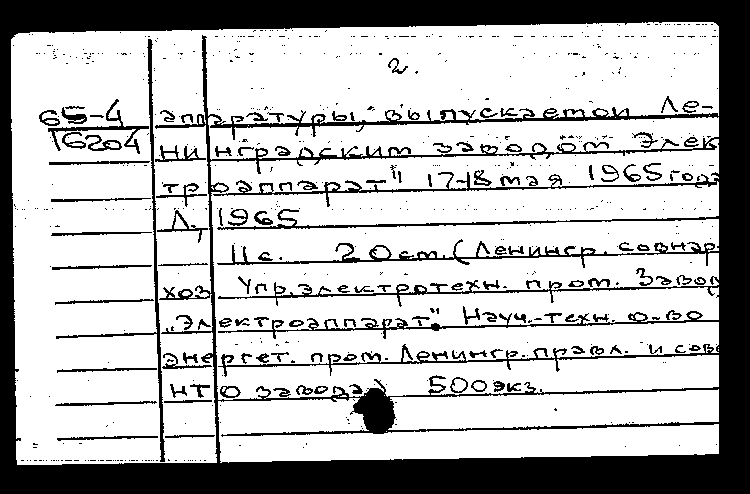 2.
65-4 аппаратуры, выпускаемой Ле-
16204 нинградским заводом „Элек
троаппарат" 17-18 мая 1965 года
Л, 1965
11 с. 20 см. (Ленингр. совнар-
хоз Упр. электротехн. пром. Завод
„Электроаппарат". Науч.-техн. о-во
энергет. пром. Ленингр. правл. и сове
НТО завода) 500 экз.